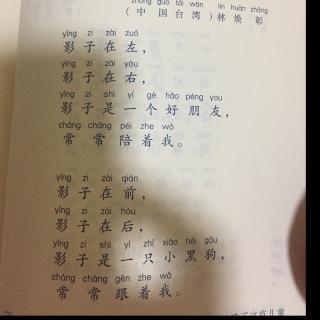 zhōng guó tái wān lín huàn zhāng
(中国台湾)林焕彰
yǐng zi zài zuǒ
影子在左，
yǐng zi zài yòu
影子在右，
yǐng zi shì yí gè hǎo péng you
影子是一个好朋友，
cháng cháng péi zhe wǒ
常常陪着我。
yǐng zi zài qián
影子在前，
yǐng zi zài hòu
影子在后，
yǐng zi shì yì zhī xiǎo hēi gǒu
影子是一只小黑狗，
cháng cháng gēn zhe wǒ
常常跟着我。